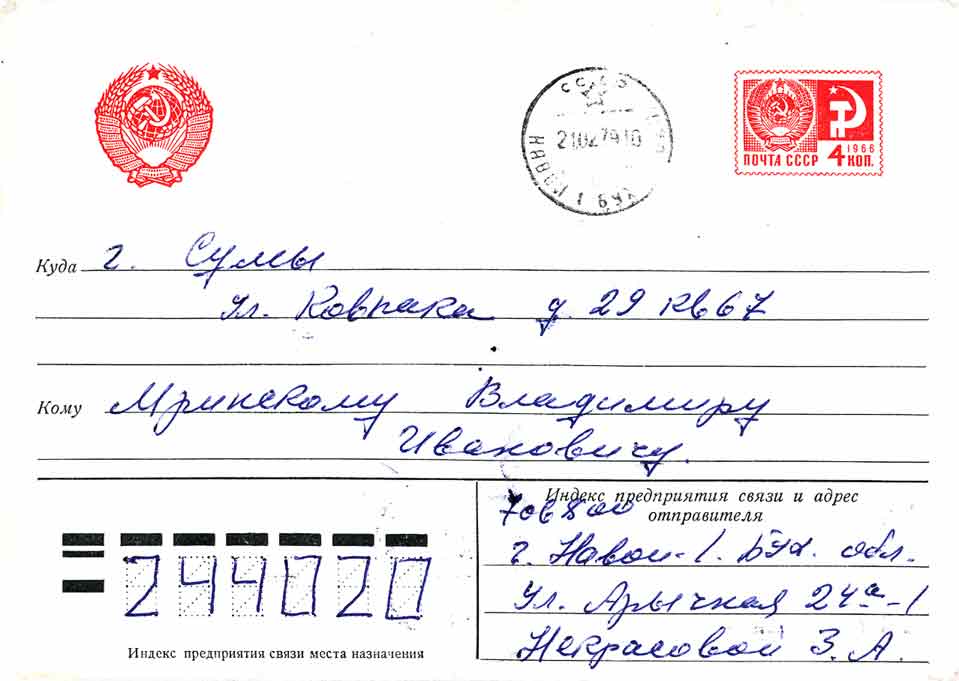 21 02 79 10
ПОЧТА СССР 4 1966 КОП.
Куда г. Сумы
Ул. Ковпака д. 29 кв 67
Кому Мринскому Владимиру
Ивановичу.
Индекс предприятия связи и адрес
отправителя
706800
г. Навои-1. Бух. обл.
Ул. Арычная 24а-1
Некрасовой З. А.
244020
Индекс предприятия связи места назначения